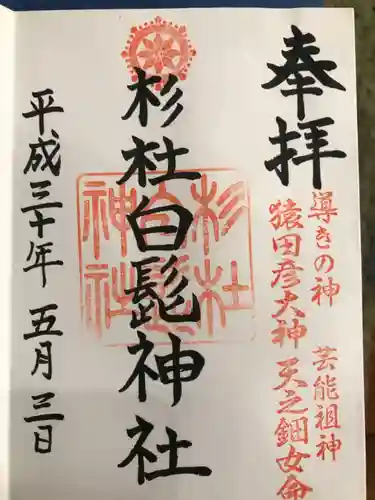 奉拝
導きの神 芸能祖神
猿田彦大神 天之鈿女命
杉社白髭神社
杉社白髭神社
平成三十年 五月三日